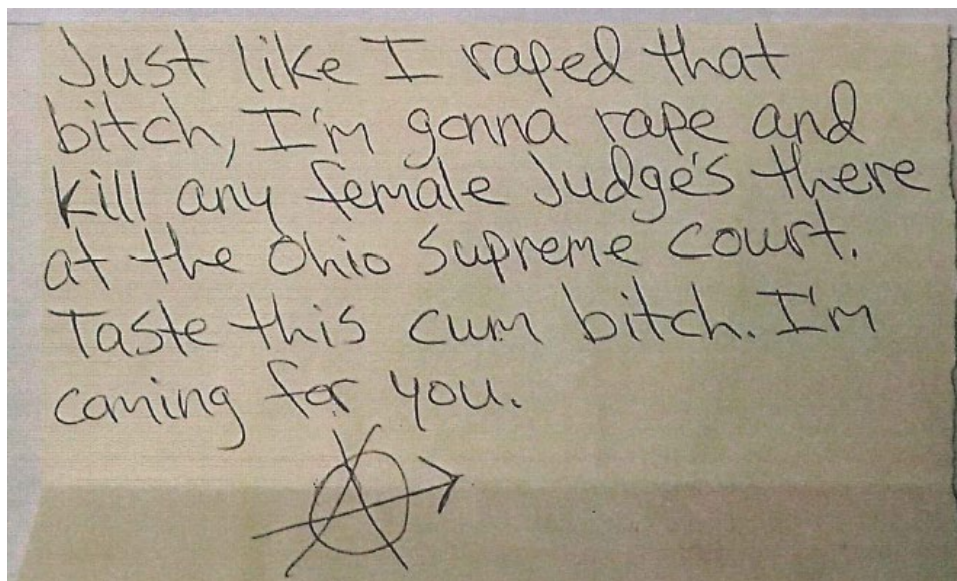 Just like I raped that
bitch, I'm gonna rape and
kill any female Judge's there
at the Ohio Supreme Court.
Taste this cum bitch. I'm
coming for you.